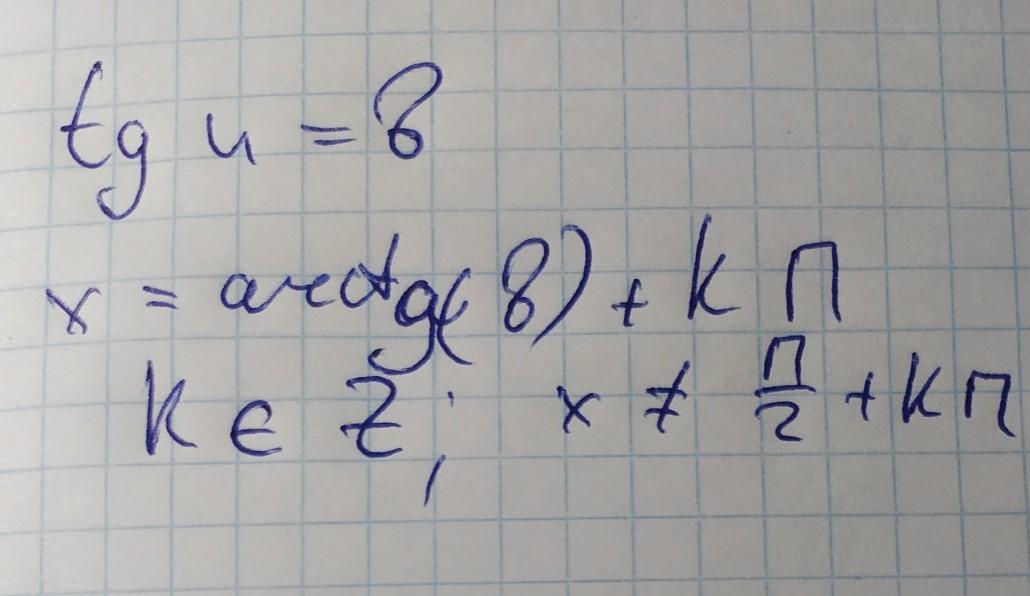 tg u = 8
x = arctg(8) + k П
k ∈ Z; x ≠ П/2 + k П